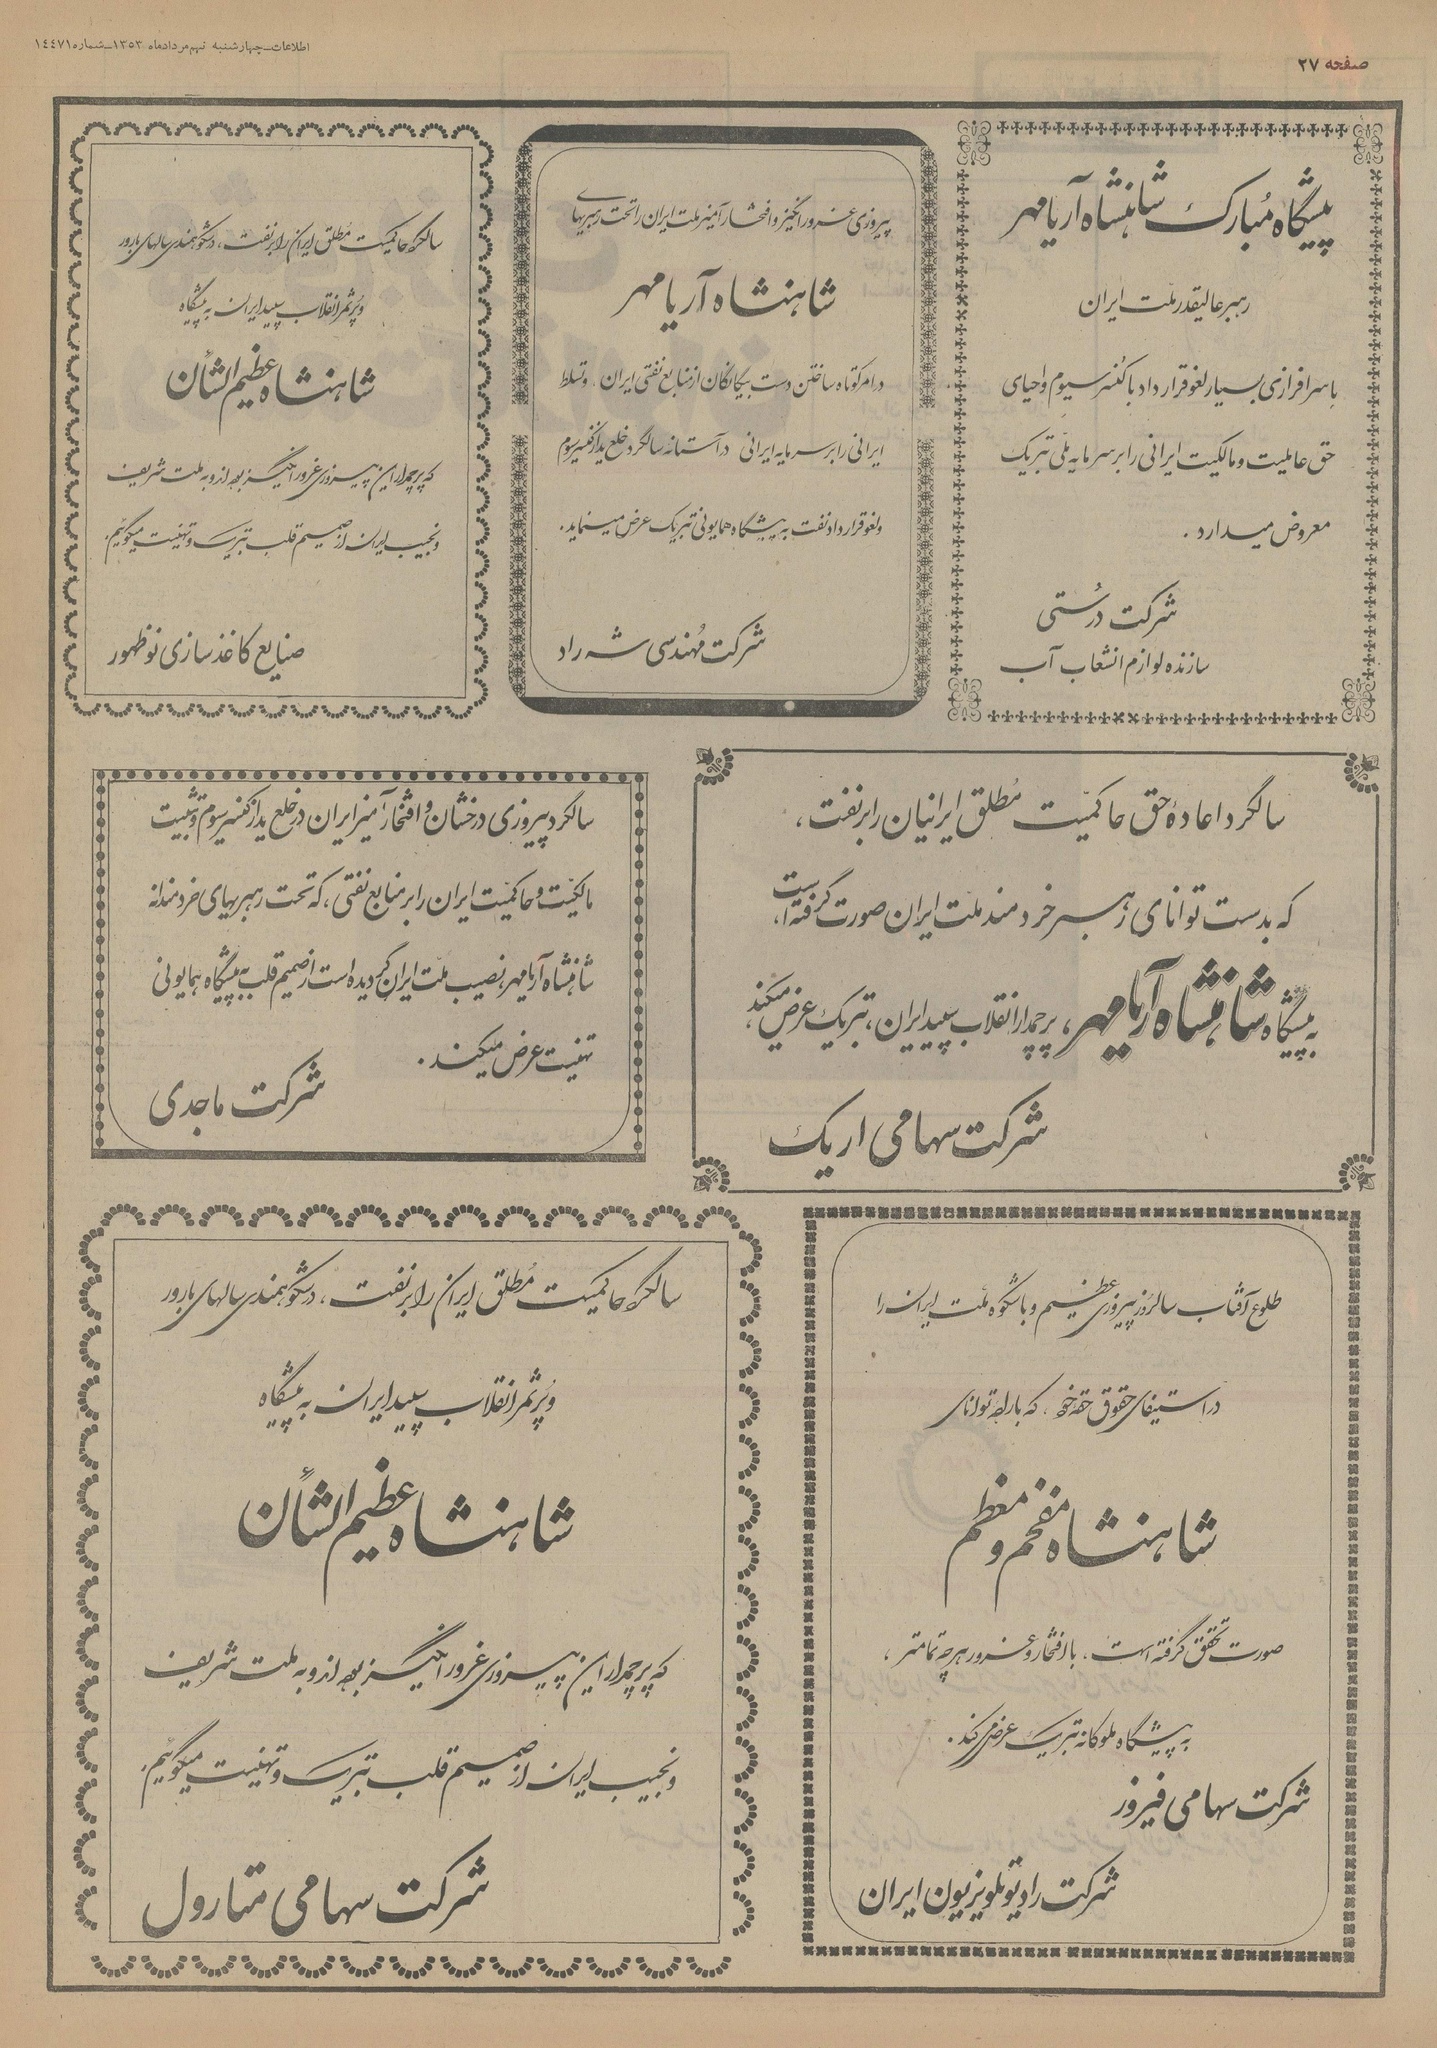 صفحه ۲۷
اطلاعات_چهارشنبه نهم مردادماه ۱۳۵۳_شماره ۱۴۴۷۱
پیشگاه مبارک شاهنشاه آریامهر
رهبر عالیقدر ملت ایران
با سرافرازی بسیار لغو قرارداد با کنسرسیوم و احیای
حق عاملیت و مالکیت ایرانی را بر سرمایه ملی تبریک
معروض میدارد .
شرکت درستی
سازنده لوازم انشعاب آب
پیروزی غرورانگیز و افتخارآمیز ملت ایران را تحت رهبریهای
شاهنشاه آریامهر
در امر کوتاه ساختن دست بیگانگان از منابع نفتی ایران ، و تسلط
ایرانی را بر سرمایه ایرانی در آستانه سالگرد خلع ید از کنسرسیوم
و لغو قرارداد نفت به پیشگاه همایونی تبریک عرض مینماید .
شرکت مهندسی شه راد
سالگرد حاکمیت مطلق ایران را بر نفت ، در شکوهمندی سالهای بارور
و پرثمر انقلاب سپید ایران به پیشگاه
شاهنشاه عظیم الشأن
که پرچمدار این پیروزی غرورانگیز بوده اند و به ملت شریف
و نجیب ایران از صمیم قلب تبریک و تهنیت میگوئیم .
صنایع کاغذسازی نوظهور
سالگرد اعادهٔ حق حاکمیت مطلق ایرانیان را بر نفت ،
که بدست توانای رهبر خردمند ملت ایران صورت گرفته است ،
به پیشگاه شاهنشاه آریامهر ، پرچمدار انقلاب سپید ایران ، تبریک عرض میکند ،
شرکت سهامی اریک
سالگرد پیروزی درخشان و افتخارآمیز ایران در خلع ید از کنسرسیوم و تثبیت
مالکیت و حاکمیت ایران را بر منابع نفتی ، که تحت رهبریهای خردمندانه
شاهنشاه آریامهر نصیب ملت ایران گردیده است از صمیم قلب به پیشگاه همایونی
تهنیت عرض میکند .
شرکت ماجدی
طلوع آفتاب سالروز پیروزی عظیم و باشکوه ملت ایران را
در استیفای حقوق حقه خود ، که با ارادهٔ توانای
شاهنشاه مفخم و معظم
صورت تحقق گرفته است ، با افتخار و غرور هرچه تمامتر ،
به پیشگاه ملوکانه تبریک عرض می کند .
شرکت سهامی فیروز
شرکت رادیو تلویزیون ایران
سالگرد حاکمیت مطلق ایران را بر نفت ، در شکوهمندی سالهای بارور
و پرثمر انقلاب سپید ایران به پیشگاه
شاهنشاه عظیم الشأن
که پرچمدار این پیروزی غرورانگیز بوده اند و به ملت شریف
و نجیب ایران از صمیم قلب تبریک و تهنیت میگوئیم .
شرکت سهامی متارول